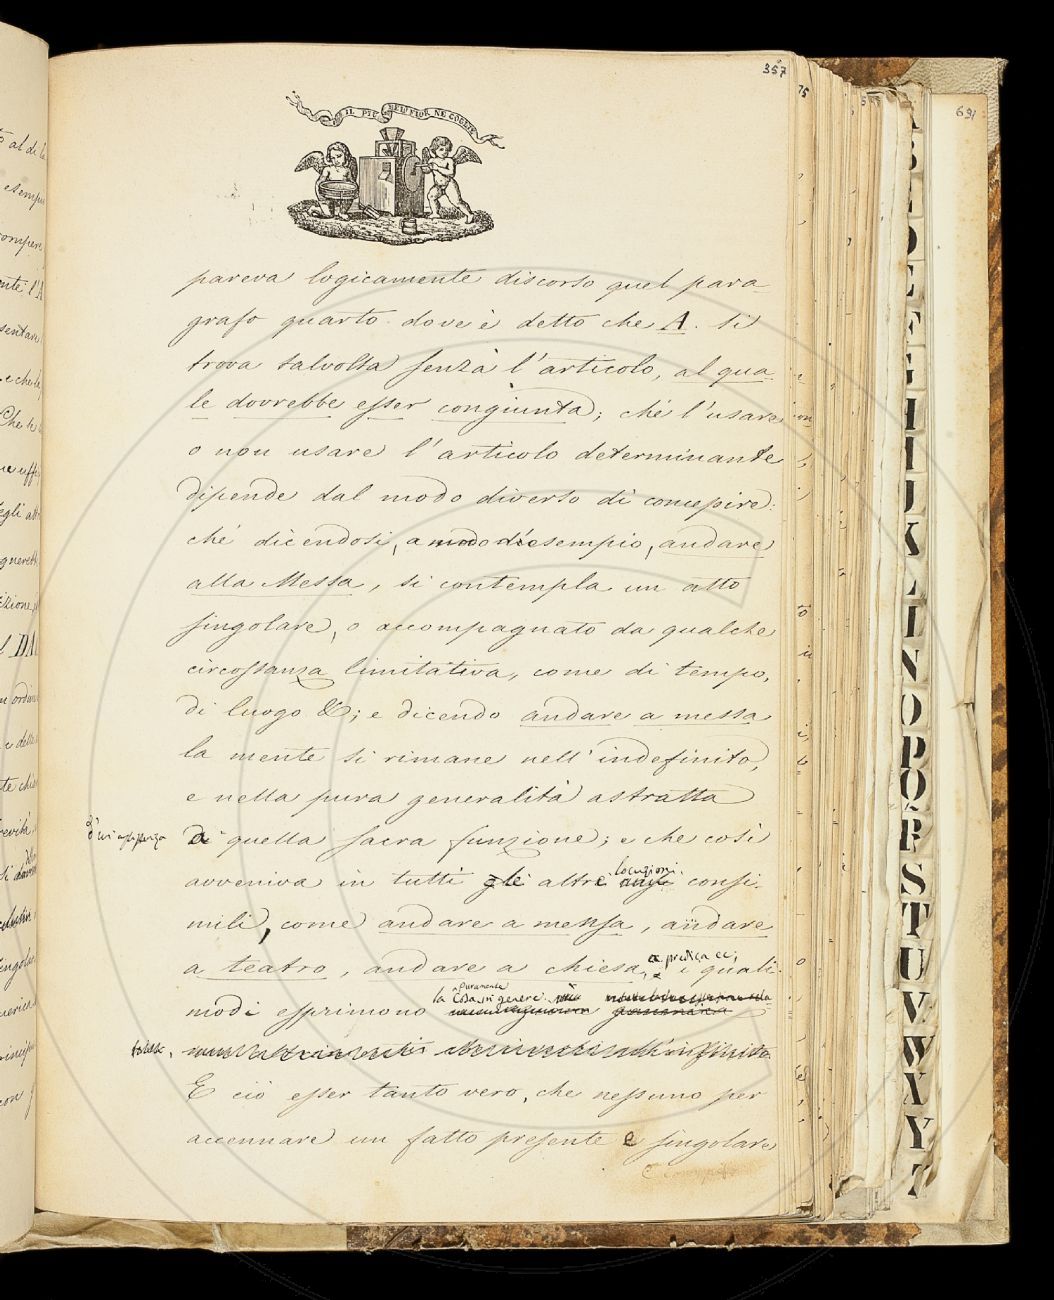 357
IL PIÙ BEL FIOR NE COGLIE
pareva logicamente discorso quel para-
grafo quarto dove è detto che A. si
trova talvolta senza l'articolo, al qua-
le dovrebbe esser congiunta; chè l'usare
o non usare l'articolo determinante
dipende dal modo diverso di concepire:
chè dicendosi, a modo d'esempio, andare
alla Messa, si contempla un atto
singolare, o accompagnato da qualche
circostanza limitativa, come di tempo,
di luogo &; e dicendo andare a messa
la mente si rimane nell'indefinito,
e nella pura generalità astratta
di quella sacra funzione; e che così
locuzioni
avveniva in tutti gli altri consi-
mili, come andare a mensa, andare
a predica ec;
a teatro, andare a chiesa, i quali
puramente
la cosa in genere
modi esprimono
E ciò esser tanto vero, che nessuno per
accennare un fatto presente e singolare
69
A
B
D
E
F
G
H
I
J
K
L
N
O
P
Q
R
S
T
U
V
W
X
Y
Z